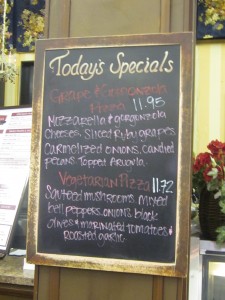 Today's Specials
Grape & Gorgonzola
Pizza 11.95
Mozzarella & gorgonzola
cheeses, Sliced Ruby grapes
Carmelized onions, candied
pecans Topped Arugula.
Vegetarian Pizza 11.72
Sauteed mushrooms mixed
bell peppers, onions, black
olives & marinated tomatoes &
Roasted garlic